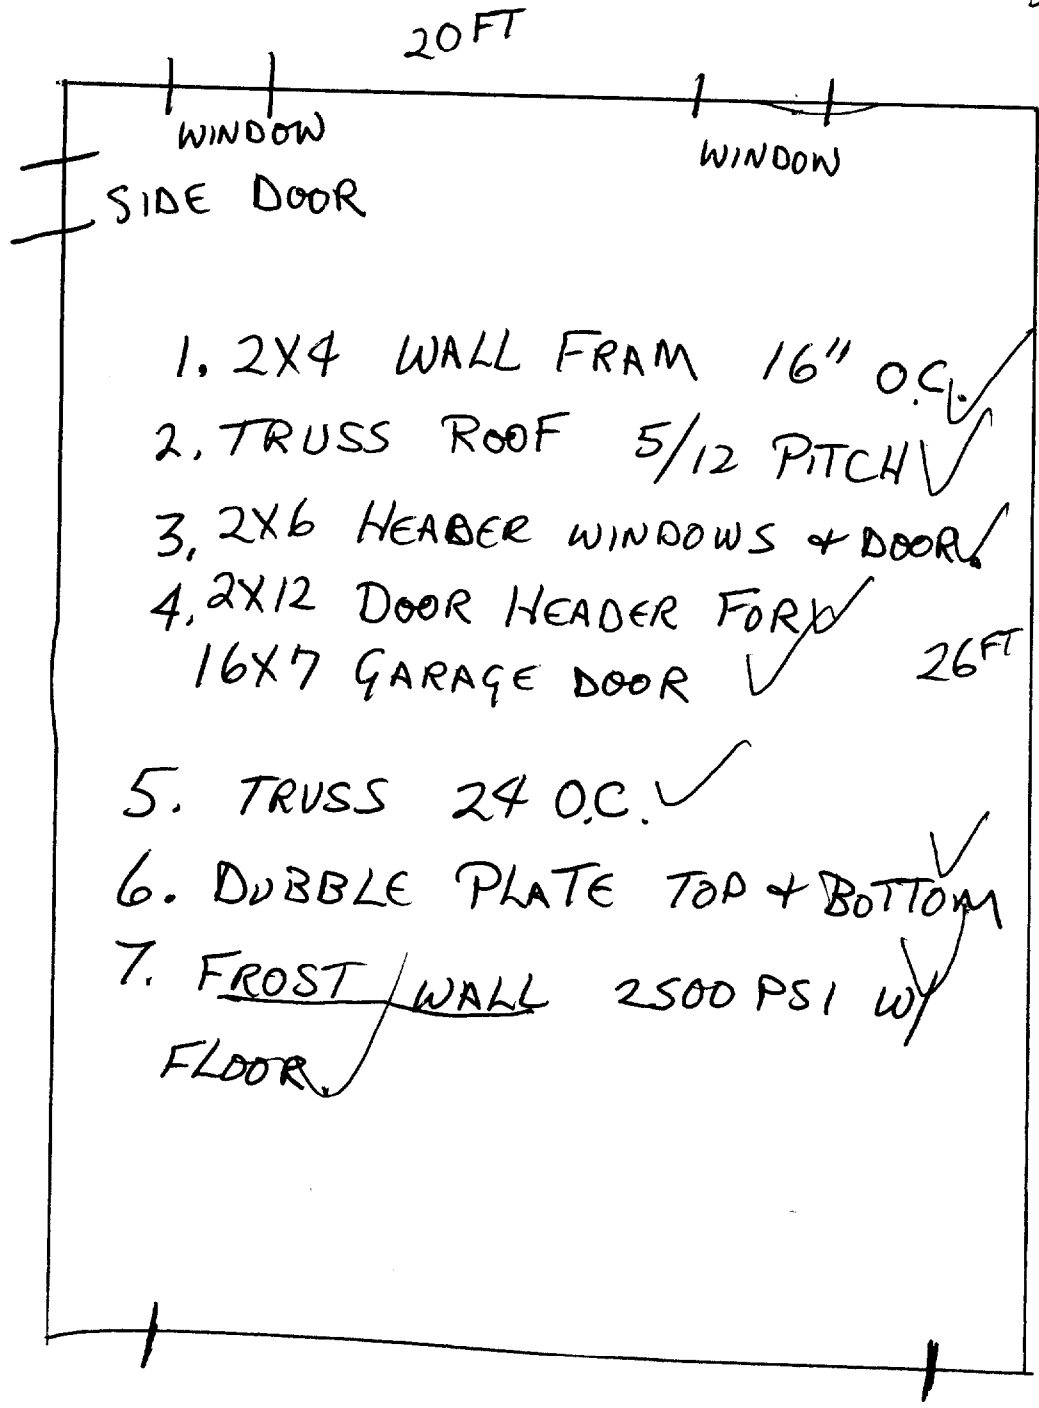 20 FT
WINDOW
WINDOW
SIDE DOOR
1. 2X4 WALL FRAM 16" O.C.
2. TRUSS ROOF 5/12 PITCH
3. 2X6 HEADER WINDOWS & DOOR.
4. 2X12 DOOR HEADER FOR
16X7 GARAGE DOOR
26 FT
5. TRUSS 24 O.C.
6. DUBBLE PLATE TOP & BOTTOM
7. FROST WALL 2500 PSI W/
FLOOR.